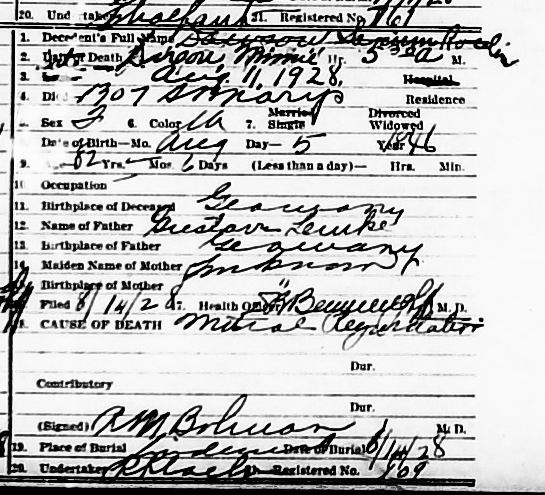 20. Undertaker 21. Registered No. 161
1. Decedent's Full Name
2. Date of Death Minnie Hr. 5 30 a M.
3. Aug 11, 1928, Hospital
4. Died 1307 St Marys Residence
5. Sex F 6. Color W 7. Married Single Divorced Widowed
Date of Birth—Mo. Aug Day— 5 Year 1846
9. Age 82 Yrs. — Mos. 6 Days (Less than a day)— Hrs. Min.
10. Occupation
11. Birthplace of Deceased Germany
12. Name of Father Gustave Lemke
13. Birthplace of Father Germany
14. Maiden Name of Mother Unknown
Birthplace of Mother "
Filed 8/14/28 17. Health Officer M. D.
18. CAUSE OF DEATH Mitral Regurgitation
Dur.
Contributory
Dur.
(Signed) R M Bolman M. D.
19. Place of Burial Date of Burial 8/14/28
20. Undertaker 21. Registered No. 169